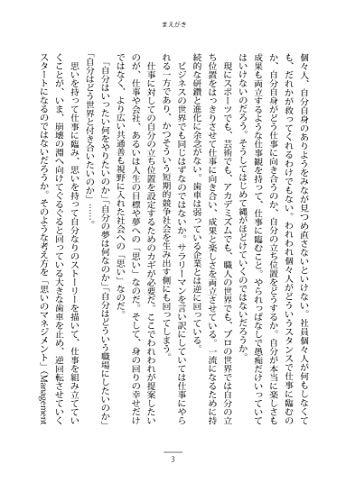 まえがき
個々人、自分自身のありようをみなが見つめ直さないといけない。社員個々人が何もしなくて
も、だれかが救ってくれるわけでもない。われわれ個々人がどういうスタンスで仕事に臨むの
か、自分自身がどう仕事に向き合うのか、自分の立ち位置をどうするか。自分が本当に楽しさも
成果も両立するような仕事観を持って、仕事に臨むこと。やられっぱなしで愚痴だけいっていて
はいけないのだろう。そうしてはじめて縄がほどけていくのではないだろうか。
現にスポーツでも、芸術でも、アカデミズムでも、職人の世界でも、プロの世界では自分の立
ち位置をはっきりさせて仕事に向き合い、成果と楽しさを両立させている。一流になるために持
続的な研鑽と進化に余念がない。歯車は弱っている企業とは逆に回っている。
ビジネスの世界でも同じはずなのではないか。サラリーマンを言い訳にしていては仕事にやら
れる一方であり、かつそういう短期的競争社会を生み出す側にも回ってしまう。
仕事に対しての自分の立ち位置を設定するためのカギが必要だ。ここでわれわれが提案したい
のが、仕事や会社、あるいは人生の目標や夢への「思い」なのだ。そして、身の回りの幸せだけ
ではなく、より広い共通善も視野に入れた社会への「思い」なのだ。
「自分はいったい何をやりたいのか」「自分の夢は何なのか」「自分はどういう職場にしたいのか」
「自分はどう世界と付き合いたいのか」……。
思いを持って仕事に臨み、思いを持って自分なりのストーリーを描いて、仕事を組み立ててい
くことが、いま、崩壊の淵へ向けてぐるぐると回っている大きな歯車を止め、逆回転させていく
スタートになるのではないだろうか。そのような考え方を「思いのマネジメント」(Management
3